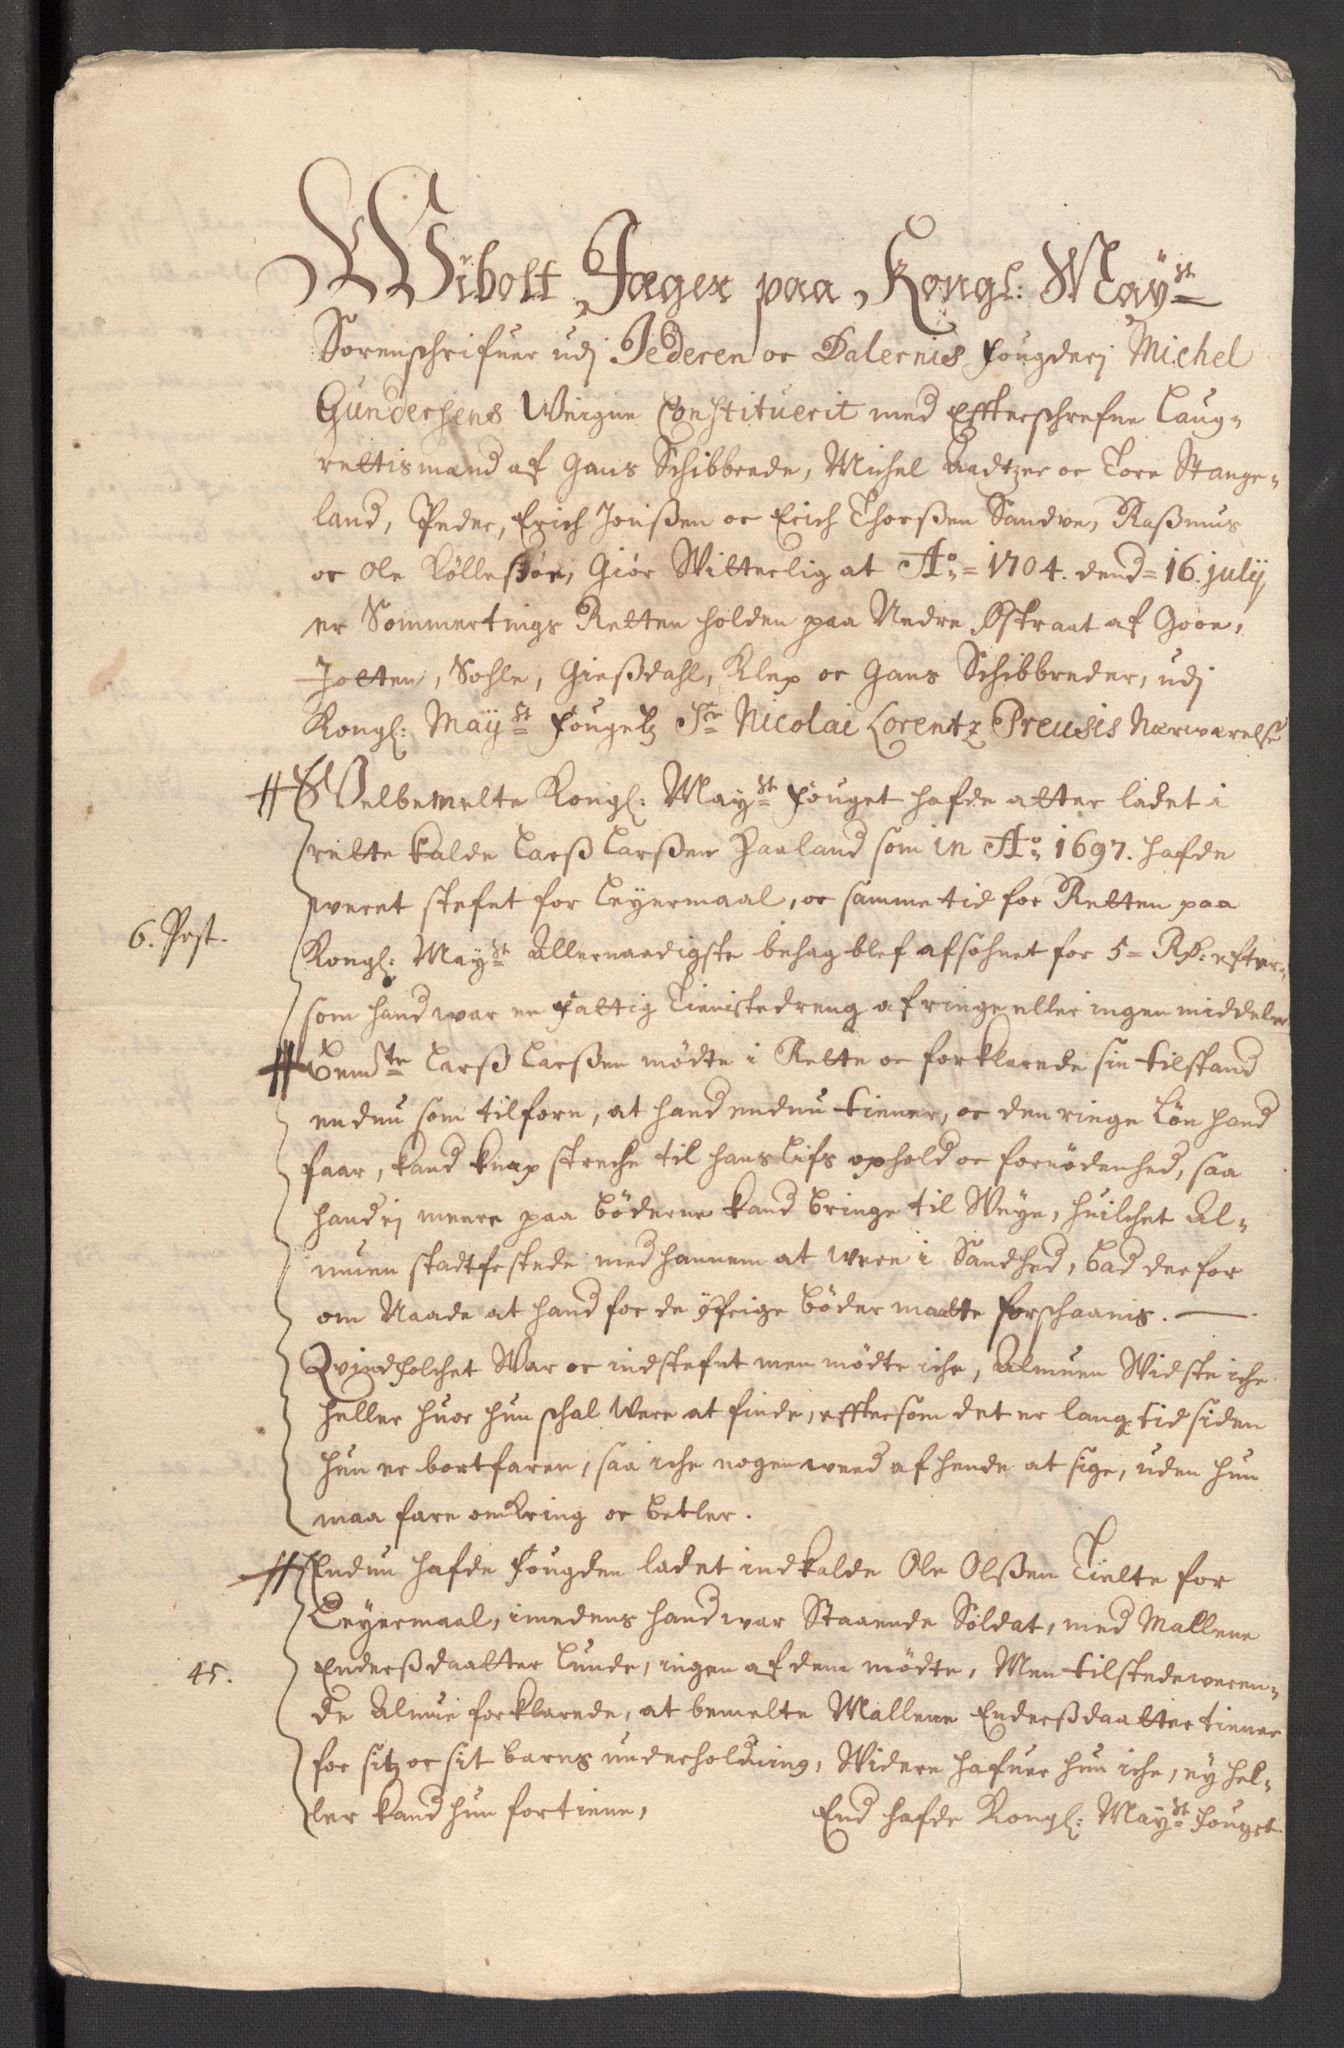 Wibolt Jæger paa Kongl: Maÿst
Sorenschrifuer udj Jederen oc Dalernis fougderj Michel
Gundersens Weigne Constituerit med Effterschrefne Laug-
rettismænd af Gans Schibbrede, Michel Aadtzer oc Tore Stange-
land, Peder, Erich Jonßen oc Erich Thorßen Sandve, Raßmus
oc Ole Kølleßøe, Giør Witterlig at Ao = 1704. dend = 16. julij
er Sommertings Retten holden paa Nedre Østraat af Goee,
Jotten, Sohle, Gießdahl, Klep oc Gans Schibbreder, udj
Kongl: Maÿst fougetz Sr Nicolai Lorentz Preusis Nærværelse
Welbemelte Kongl: Maÿst fouget hafde atter ladet i
rette kalde Larß Larßen Haaland som in Ao 1697. hafde
weret stefnt for Leyermaal, oc samme tid for Retten paa
6. Post.
Kongl: Mayst Allernaadigste behag blef afsohnet for 5 = Rd: efter-
som hand war en fattig Tienistedreng af ringe eller ingen middeler
Bemte Larß Larßen mødte i Rette oc forklarede sin tilstand
endnu som tilforn, at hand endnu tiener, oc den ringe Løn hand
faar, kand knap streche til hans Lifs ophold oc fornødenhed, saa
hand ej meere paa bøderne kand bringe til Weye, huilchet Al-
muen stadfestede med hannem at were i Sandhed, bad derfor
om Naade at hand for de øfrige bøder maatte forschaanis.
Qvindfolchet War oc indstefnt men mødte iche, Almuen Widste iche
heller huor hun schal Were at finde, efftersom det er lang tid siden
hun er bortfaren, saa iche nogen weed af hende at sige, uden hun
maa fare omkring oc betler.
Endnu hafde fougden ladet indkalde Ole Olßen Tielte for
Leyermaal, imedens hand war Staaende Soldat, med Mallene
45.
Enderßdaatter Lunde, ingen af dem mødte, Men tilstedeweren-
de Almue forklarede, at bemelte Mallene Enderßdaatter tiener
for sitz oc sit barns underholding, Widere hafuer hun iche, ey hel-
ler kand hun fortiene,
End hafde Kongl: Mayst fouget